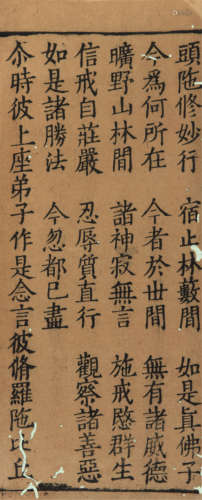 頭陁修妙行　宿止林藪間　如是真佛子
今為何所在　今者於世間　無有諸威德
曠野山林間　諸神寂無言　施戒愍群生
信戒自莊嚴　忍辱質直行　觀察諸善惡
如是諸勝法　今忽都已盡
尒時彼上座弟子作是念言彼脩羅陁比丘